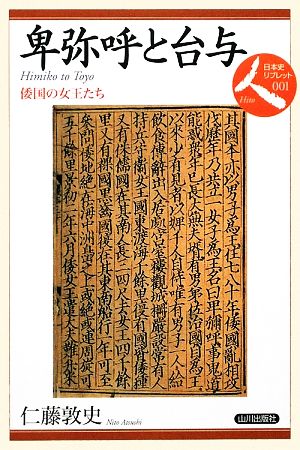 卑弥呼と台与
Himiko to Toyo
倭国の女王たち
日本史
リブレット
001
人
Hito
其國本亦以男子為王住七八十年倭國亂相攻
伐歷年乃共立一女子為王名曰卑彌呼事鬼道
能惑衆年已長大無夫壻有男弟佐治國自為王
以來少有見者以婢千人自侍唯有男子一人給
飲食傳辭出入居處宮室樓觀城柵嚴設常有人
持兵守衛女王國東渡海千餘里復有國皆倭種
又有侏儒國在其南人長三四尺去女王四千餘
里又有裸國黑齒國復在其東南船行一年可至
參問倭地絕在海中洲㠀之上或絕或連周旋可
五千餘里景初二年六月倭女王遣大夫難升米
仁藤敦史
Nito Atsushi
山川出版社